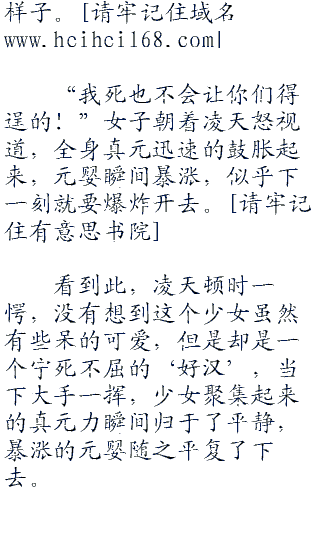 样子。[请牢记住域名
www.hcihci168.com|
“我死也不会让你们得
逞的！”女子朝着凌天怒视
道，全身真元迅速的鼓胀起
来，元婴瞬间暴涨，似乎下
一刻就要爆炸开去。[请牢记
住有意思书院]
看到此，凌天顿时一
愕，没有想到这个少女虽然
有些呆的可爱，但是却是一
个宁死不屈的‘好汉’，当
下大手一挥，少女聚集起来
的真元力瞬间归于了平静，
暴涨的元婴随之平复了下
去。